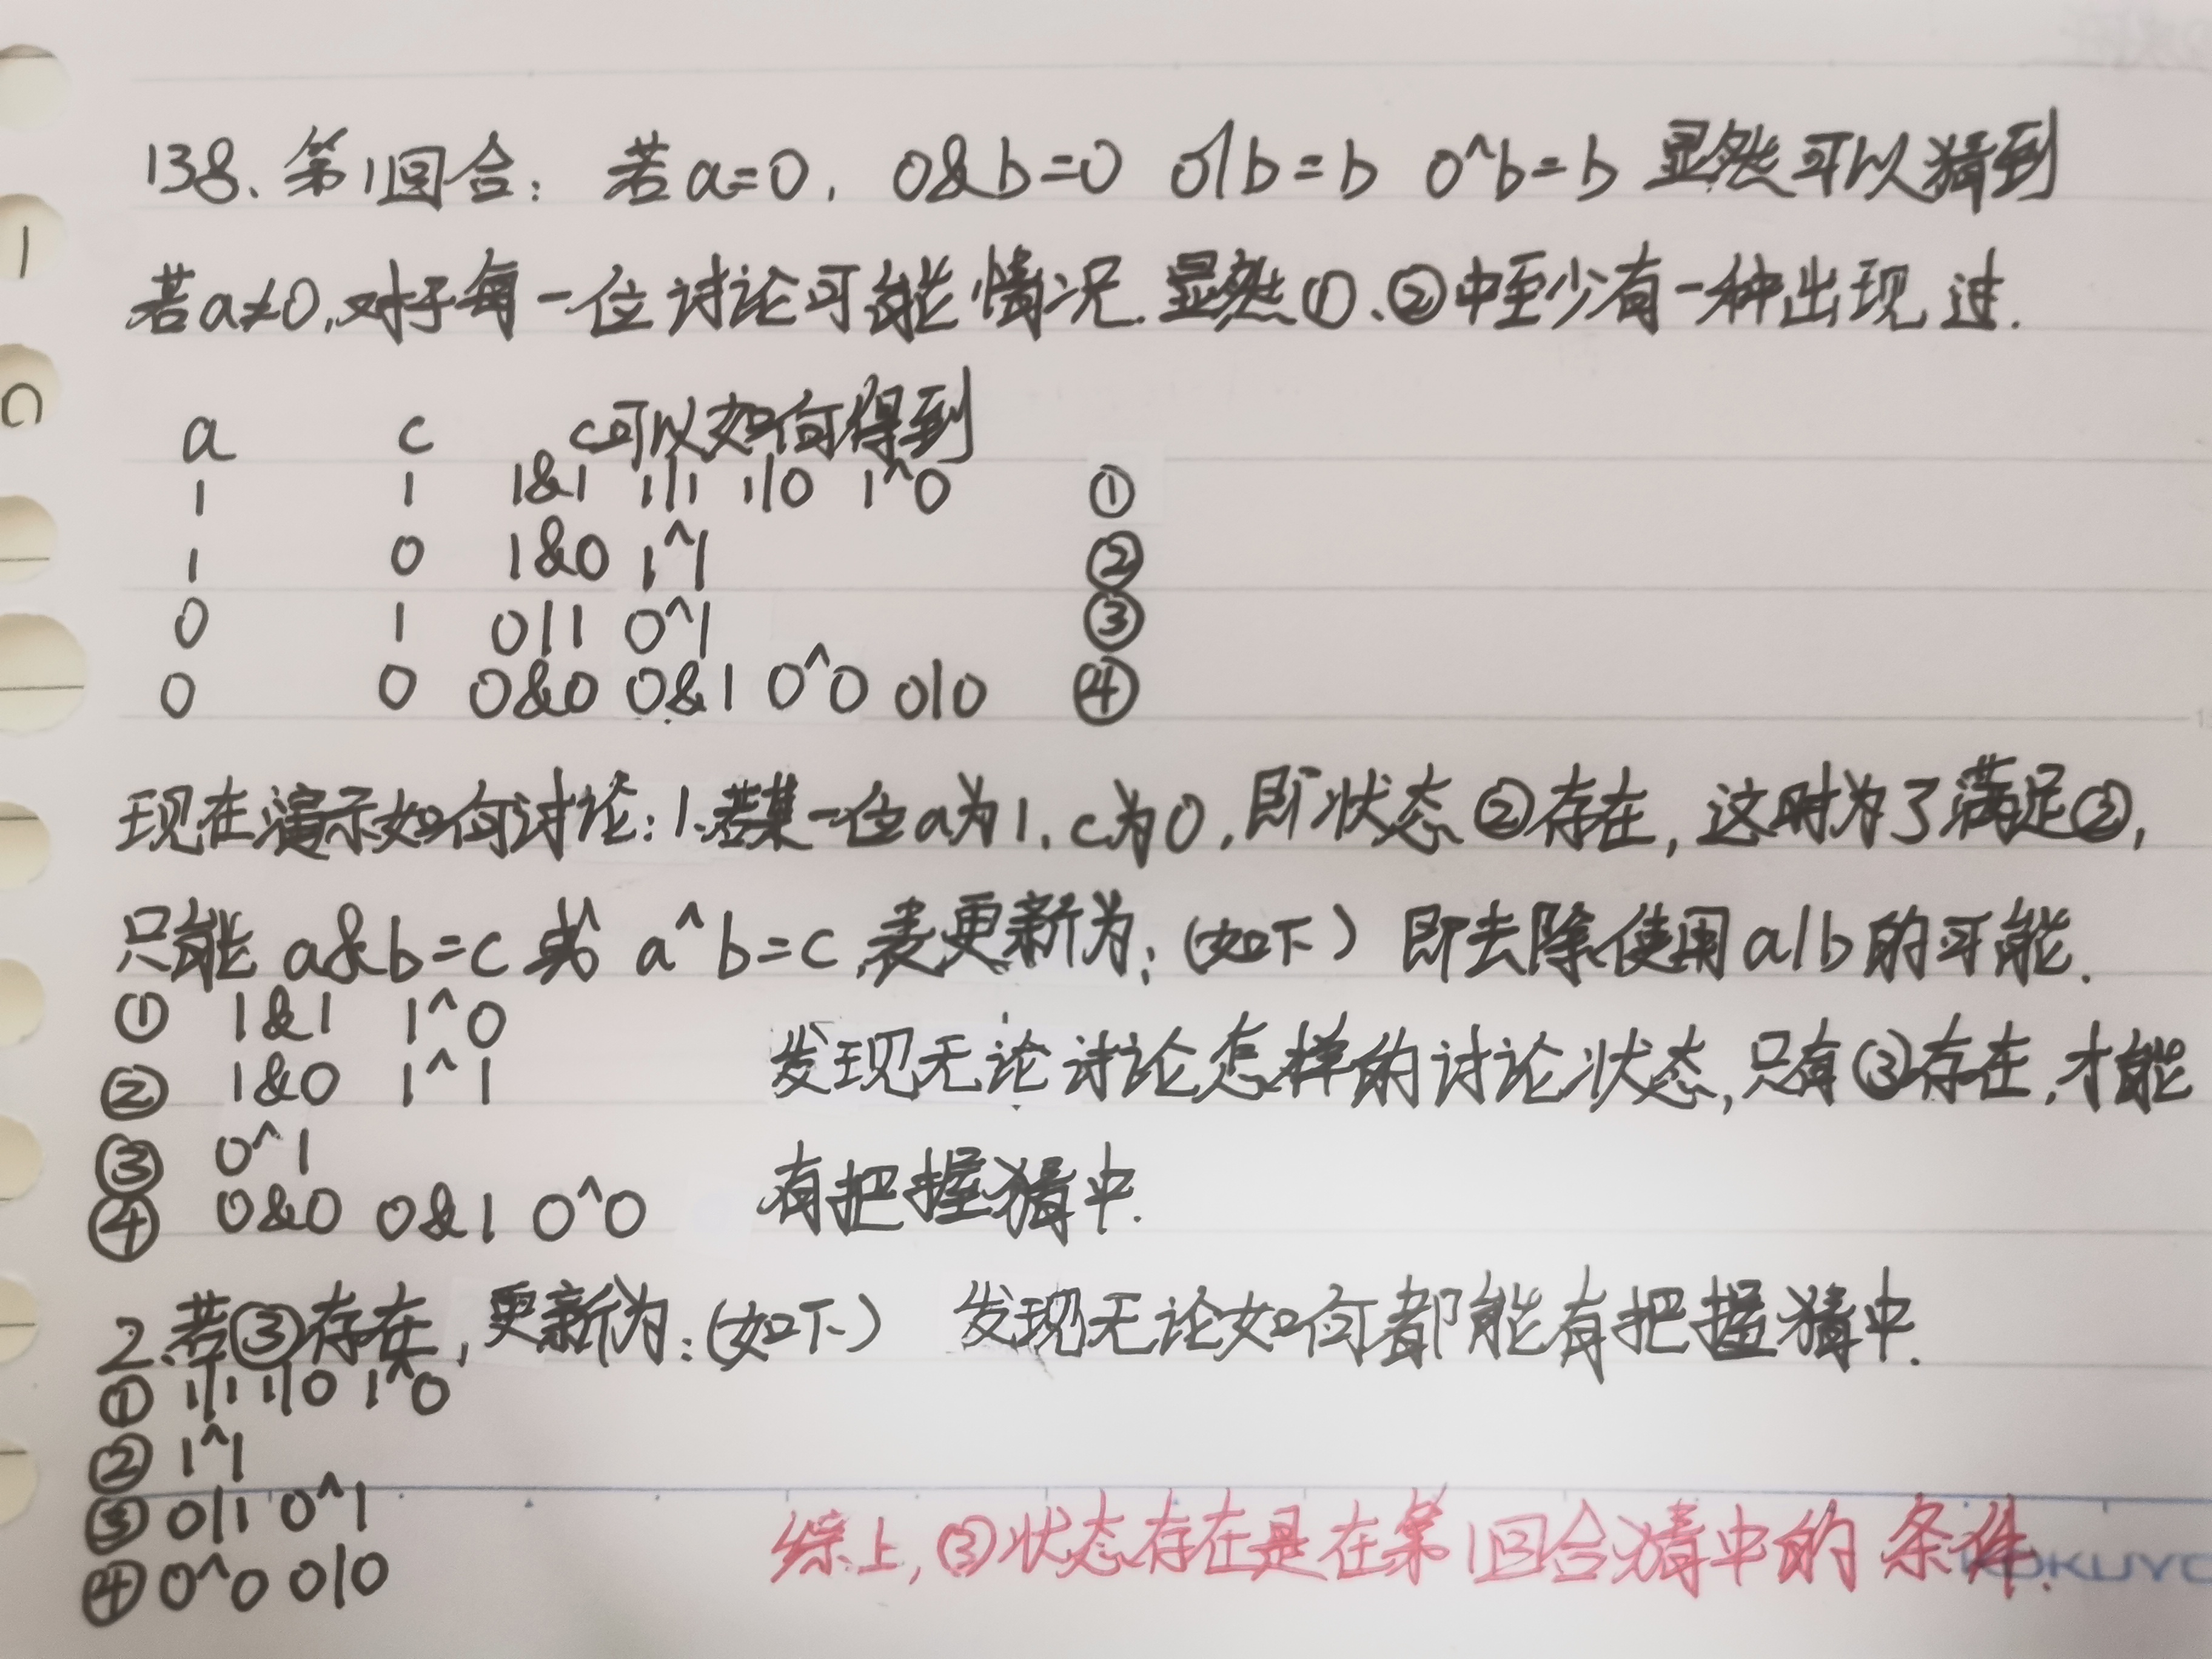 138、第1回合：若a=0，0&b=0 0|b=b 0^b=b 显然可以猜到
若a≠0，对于每一位讨论可能情况．显然①、②中至少有一种出现过．
a c c可以如何得到
1 1 1&1 1|1 1|0 1^0 ①
1 0 1&0 1^1 ②
0 1 0|1 0^1 ③
0 0 0&0 0&1 0^0 0|0 ④
现在演示如何讨论：1.若某一位a为1，c为0，即状态②存在，这时为了满足②，
只能 a&b=c 或 a^b=c，表更新为：（如下） 即去除使用a|b的可能．
① 1&1 1^0
② 1&0 1^1
③ 0^1
④ 0&0 0&1 0^0
发现无论讨论怎样的讨论状态，只有③存在，才能
有把握猜中．
2.若③存在，更新为：（如下） 发现无论如何都能有把握猜中．
① 1|1 1|0 1^0
② 1^1
③ 0|1 0^1
④ 0^0 0|0
综上，③状态存在是在第1回合猜中的条件．
KOKUYO